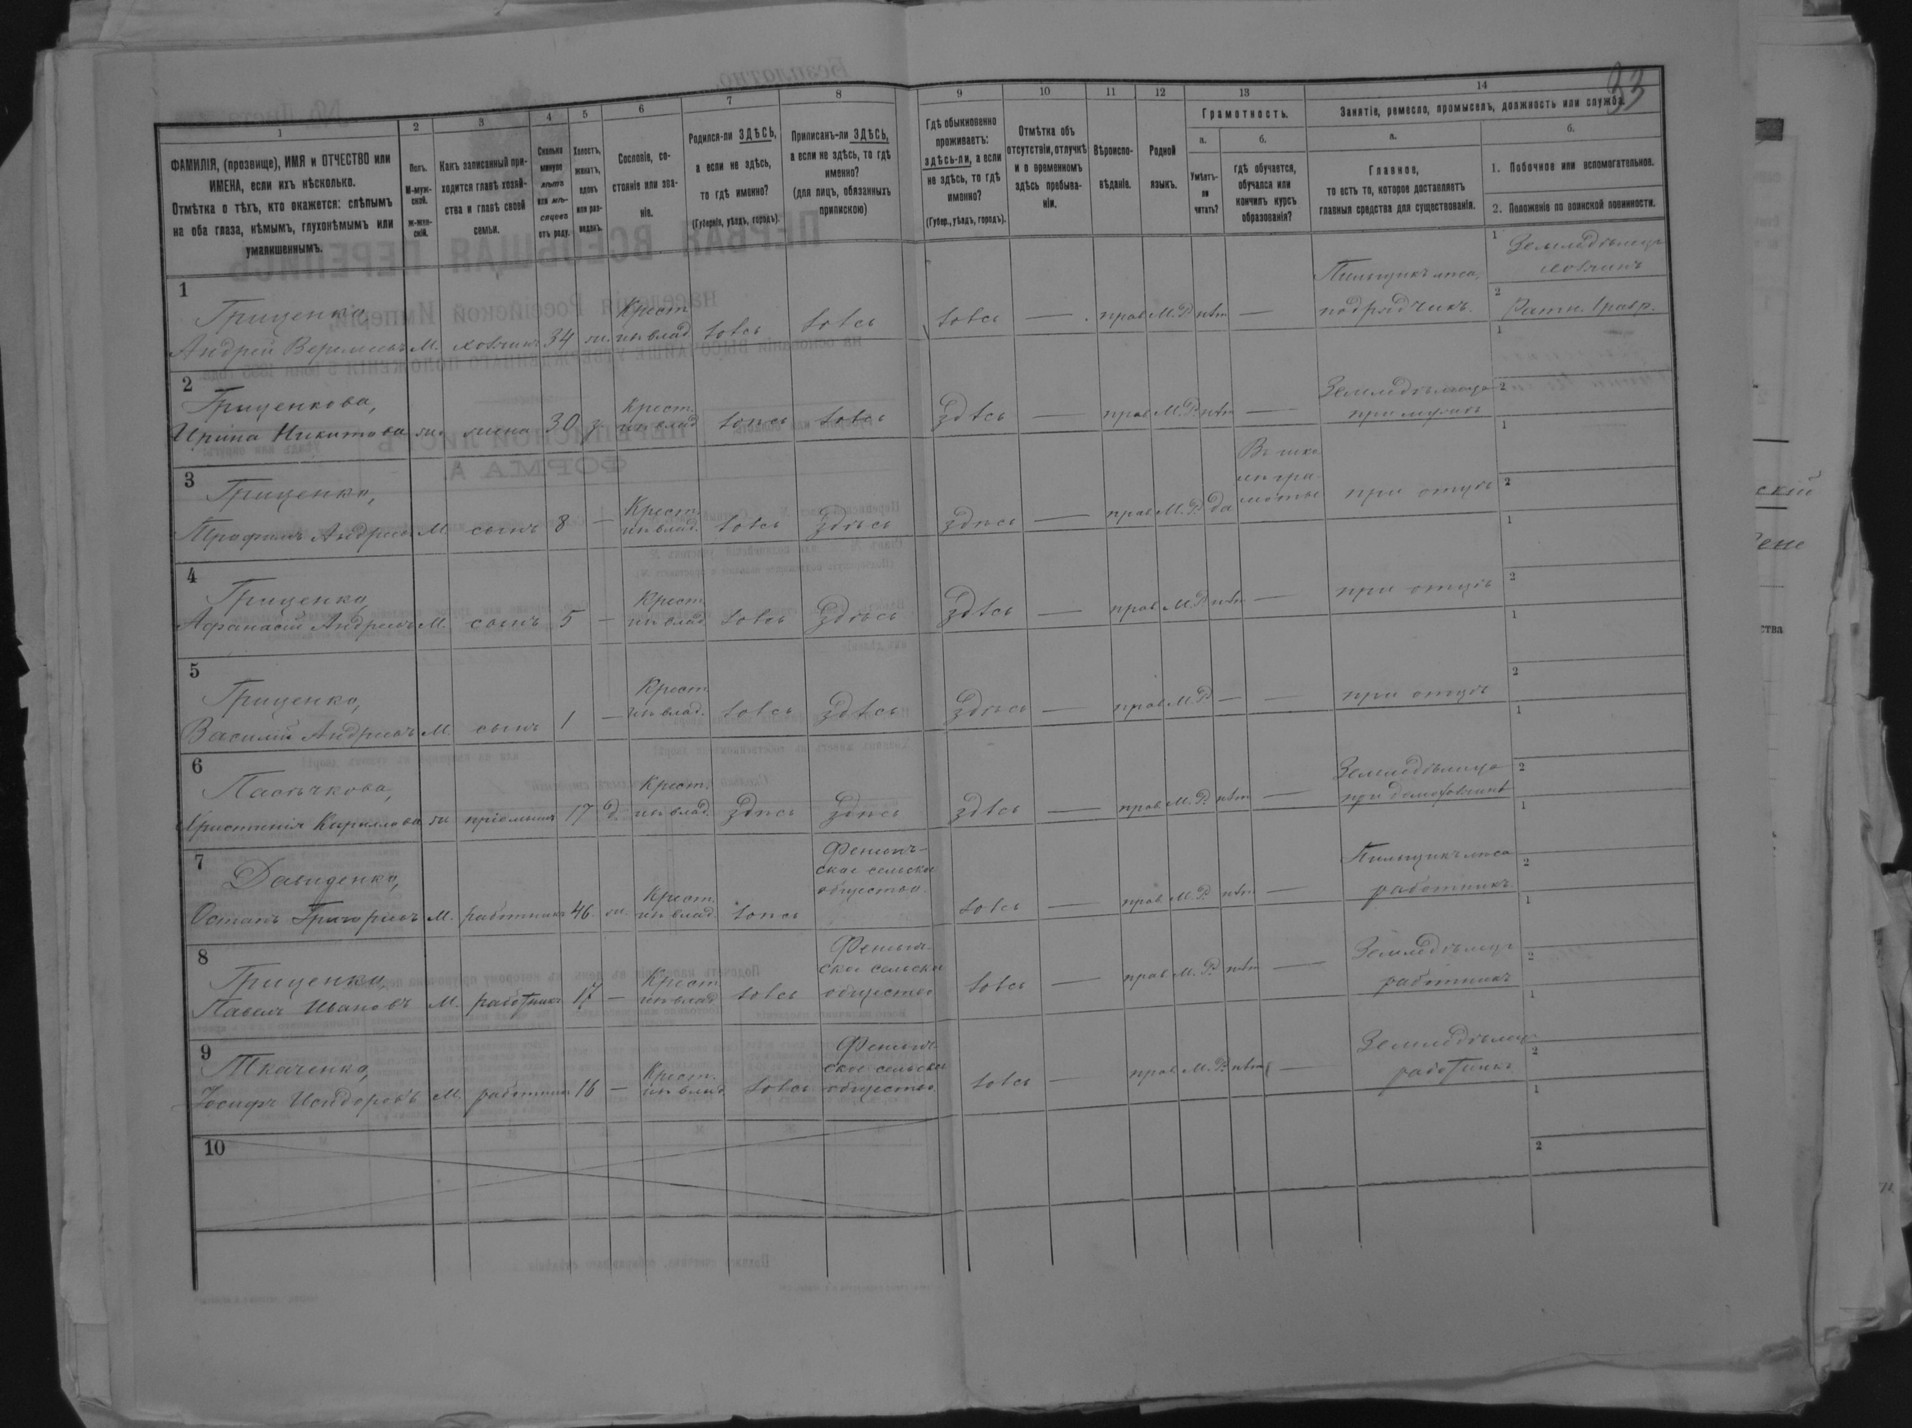 33
1 2 3 4 5 6 7 8 9 10 11 12 13 14
ФАМИЛІЯ, (прозвище), ИМЯ и ОТЧЕСТВО или
ИМЕНА, если ихъ нѣсколько.
Отмѣтка о тѣхъ, кто окажется: слѣпымъ
на оба глаза, нѣмымъ, глухонѣмымъ или
умалишеннымъ.
Полъ.
М-муж-
ской.
ж-жен-
скій.
Какъ записанный при-
ходится главѣ хозяй-
ства и главѣ своей
семьи.
Сколько
минуло
лѣтъ
или мѣ-
сяцевъ
отъ роду.
Холостъ,
женатъ,
вдовъ
или раз-
веденъ.
Сословіе, со-
стояніе или зва-
ніе.
Родился-ли ЗДѢСЬ,
а если не здѣсь,
то гдѣ именно?
(Губернія, уѣздъ, городъ).
Приписанъ-ли ЗДѢСЬ,
а если не здѣсь, то гдѣ
именно?
(для лицъ, обязанныхъ
припискою)
Гдѣ обыкновенно
проживаетъ:
здѣсь-ли, а если
не здѣсь, то гдѣ
именно?
(Губер., уѣздъ, городъ).
Отмѣтка объ
отсутствіи, отлучкѣ
и о временномъ
здѣсь пребыва-
ніи.
Вѣроиспо-
вѣданіе.
Родной
языкъ.
Грамотность.
а.
Умѣетъ-
ли
читать?
б.
гдѣ обучается,
обучался или
кончилъ курсъ
образованія?
Занятіе, ремесло, промыселъ, должность или служба.
а.
Главное,
то есть то, которое доставляетъ
главныя средства для существованія.
б.
1. Побочное или вспомогательное.
2. Положеніе по воинской повинности.
1
Гриценко,
Андрей Веремеевъ М. хозяинъ 34 ж. Крест. изъ влад. здѣсь здѣсь здѣсь — прав М.Р. нѣт —
Пильщикъ лѣса,
подрядчикъ.
1 Земледѣлецъ
хозяинъ
2
2
Гриценкова,
Ирина Никитова ж. жена 30 з. Крест. изъ влад. здѣсь здѣсь здѣсь — прав М.Р. нѣт —
Земледѣлица
при мужѣ
1
2
3
Гриценко,
Трофимъ Андреевъ М. сынъ 8 — Крест. изъ влад. здѣсь здѣсь здѣсь — прав М.Р. да
при отцѣ
1
2
4
Гриценко
Афанасій Андреевъ М. сынъ 5 — Крест. изъ влад. здѣсь здѣсь здѣсь — прав М.Р. нѣт —
при отцѣ
1
2
5
Гриценко,
Василій Андреевъ М. сынъ 1 — Крест. изъ влад. здѣсь здѣсь здѣсь — прав М.Р. — —
при отцѣ
1
2
6
Христинія Кирилова ж 17 д. Крест. изъ влад. здѣсь здѣсь здѣсь — прав М.Р. нѣт —
Земледѣлица
при домохозяинѣ
1
2
7
Давиденко,
Остапъ Григорьевъ М. работникъ 46 ж. Крест. изъ влад. здѣсь
ское сельское
общество
здѣсь — прав М.Р. нѣт —
Пильщикъ лѣса
работникъ
1
2
8
Гриценко,
Павелъ Ивановъ М. работникъ 17 — Крест. изъ влад. здѣсь
ское сельское
общество
здѣсь — прав М.Р. нѣт —
Земледѣлецъ
работникъ
1
2
9
Ткаченко,
Іосифъ Исидоровъ М. работникъ 16 — Крест. изъ влад. здѣсь
ское сельское
общество
здѣсь — прав М.Р. нѣт —
Земледѣлецъ
работникъ
1
2
10